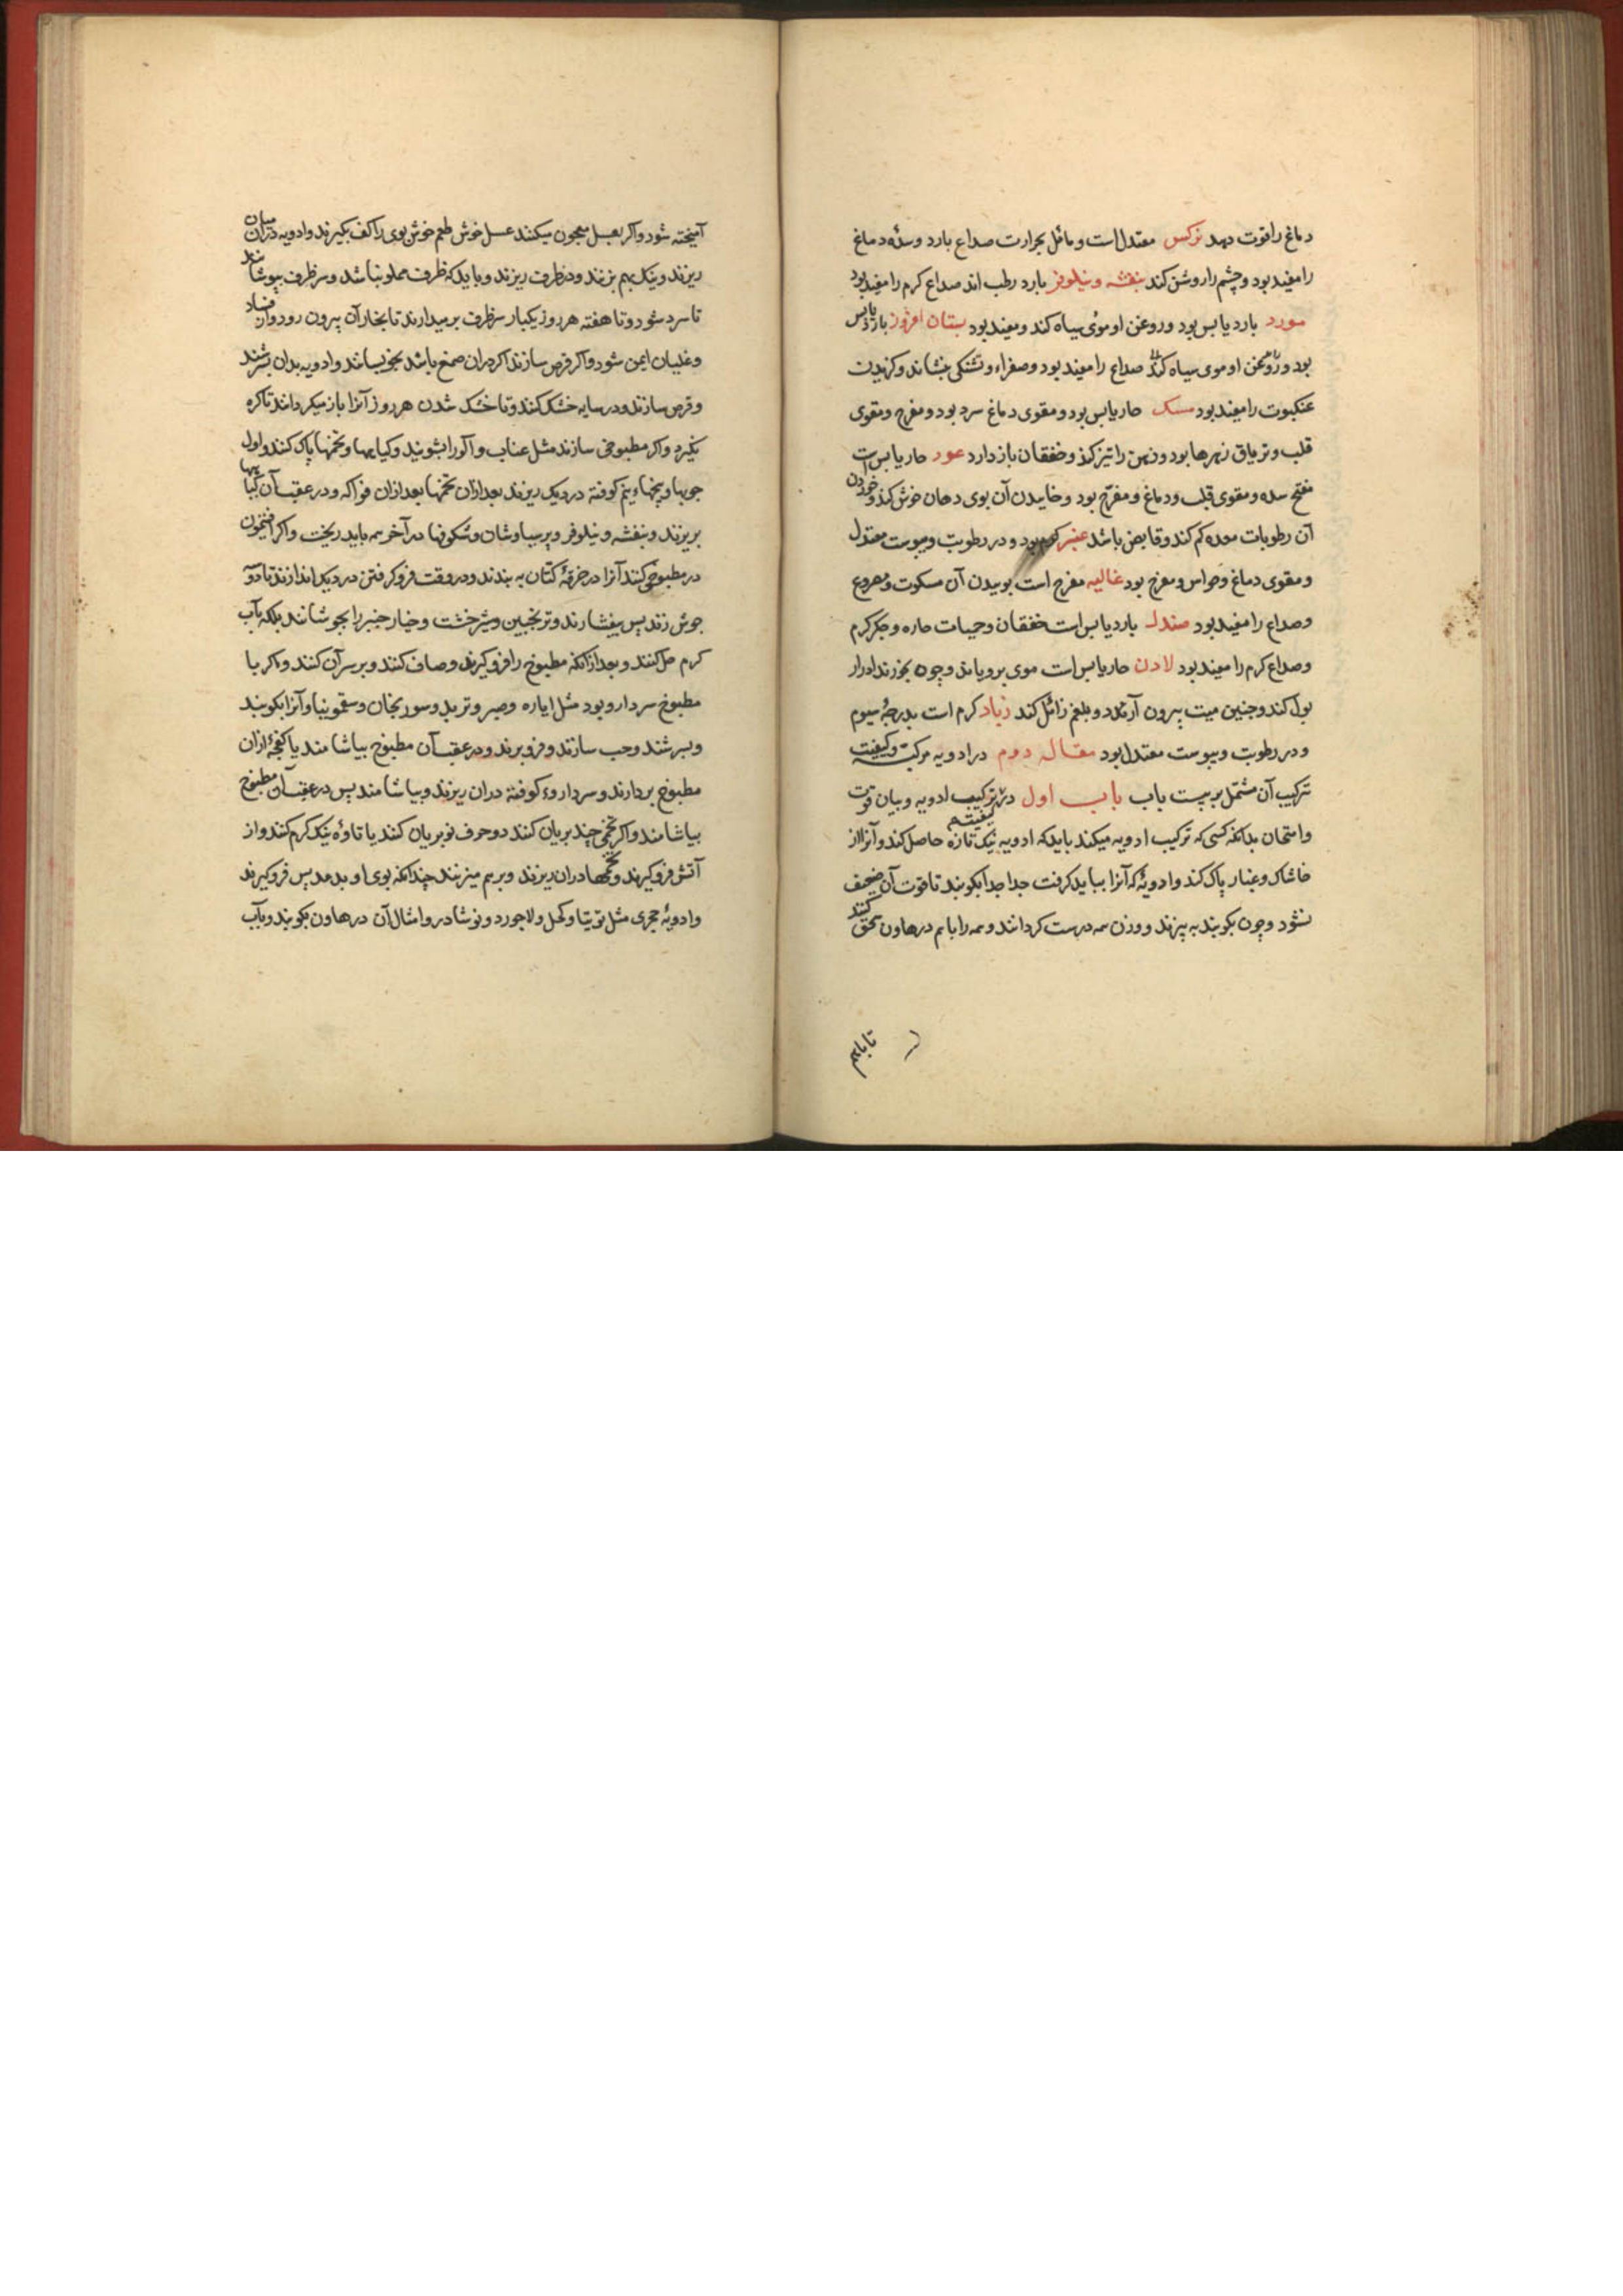 دماغ را قوت دهد نرکس معتدل است و مائل بحرارت صداع بارد و سدّه دماغ
را مفید بود و چشم را روشن کند بنفشه و نیلوفر بارد رطب اند صداع کرم را مفید بود
مورد بارد یابس بود و روغن او موی سیاه کند و مفید بود بستان افروز بارد یابس
بود و روغن او موی سیاه کند صداع را مفید بود و صفراء و تشنکی بنشاند و کزیدن
عنکبوت را مفید بود مسک حار یابس بود و مقوی دماغ سرد بود و مفرح و مقوی
قلب و تریاق زهرها بود و ذهن را تیز کند و خفقان باز دارد عود حار یابس است
مفتح سده و مقوی قلب و دماغ و مفرّح بود و خاییدن آن بوی دهان خوش کند و خوردن
آن رطوبات معده کم کند و قابض باشد عنبر کرم بود و در رطوبت و یبوست معتدل
و مقوی دماغ و حواس و مفرح بود غالیه مفرح است بوییدن آن مسکوت و مصروع
و صداع را مفید بود صندل بارد یابس است خفقان و حمیات حاره و جکر کرم
و صداع کرم را مفید بود لادن حار یابس است موی برویاند و چون بخورند ادرار
بول کند و جنین میت بیرون آرد و بلغم زائل کند زباد کرم است بدرجهٔ سیوم
و در رطوبت و یبوست معتدل بود مقاله دوم در ادویه مرکبه و کیفیت
ترکیب آن مشتمل بر بیست باب باب اول در کیفیت ترکیب ادویه و بیان قوت
و امتحان بدانکه کسی که ترکیب ادویه میکند باید که ادویه نیک تازه حاصل کند و آنرا از
خاشاک و غبار پاک کند و ادویهٔ که آنرا بباید کرفت جدا جدا بکوبند تا قوت آن ضعیف
نشود و چون بکوبند به بیزند و وزن همه درست کردانند و همه را باهم در هاون سحق کنند
تا باهم
آمیخته شود و اکر بعسل معجون میکنند عسل خوش طعم خوش بوی را کف بکیرند و ادویه در میان آن
ریزند و نیک بهم بزنند و در ظرف ریزند و باید که ظرف مملو نباشد و سر ظرف بپوشانند
تا سرد شود و تا هفته هر روز یکبار سر ظرف بر میدارند تا بخار آن بیرون رود و از فساد
و غلیان ایمن شود و اکر قرص سازند اکر در آن صمغ باشد بخویسانند و ادویه بدان بسرشند
و قرص سازند و در سایه خشک کنند و تا خشک شدن هر روز آنرا باز میکردانند تا کره
نکیرد و اکر مطبوخی سازند مثل عناب و آلو را بشویند و کیاهها و تخمها پاک کنند و اول
چوبها و بیخها و نیم کوفته در دیک ریزند بعد ازان تخمها بعد ازان فواکه و در عقب آن کیاهها
بریزند و بنفشه و نیلوفر و پرسیاوشان و شکوفها در آخر همه باید ریخت و اکر افتیمون
در مطبوخی کنند آنرا در خرقهٔ کتان به بندند و در وقت فرو کرفتن در دیک اندازند تا دو
جوش زند پس بیفشارند و ترنجبین و شیرخشت و خیار چنبر را بجوشانند بلکه بآب
کرم حل کنند و بعد از آنکه مطبوخ را فرو کیرند و صاف کنند و بر سر آن کنند و اکر با
مطبوخ سر دارو بود مثل ایاره و صبر و تربد و سورنجان و سقمونیا و آنرا بکوبند
و بسرشند و حب سازند و فرو برند و در عقب آن مطبوخ بیاشامند یا کفچهٔ ازان
مطبوخ بردارند و سر داروء کوفته دران ریزند و بیاشامند پس در عقب آن مطبوخ
بیاشامند و اکر تخمی چند بریان کنند دو حرف نو بریان کنند یا تاوهٔ نیک کرم کنند و از
آتش فرو کیرند و تخمها دران ریزند و برهم میزنند چندانکه بوی او بدمد پس فرو کیرند
و ادویهٔ حجری مثل توتیا و کحل و لاجورد و نوشادر و امثال آن در هاون بکوبند و بآب